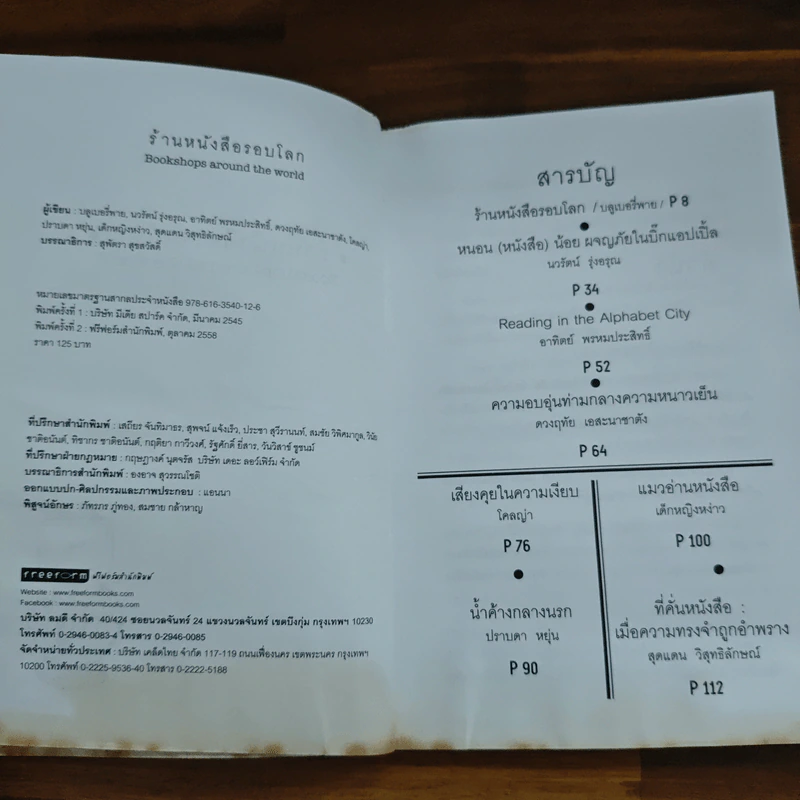 ร้านหนังสือรอบโลก
Bookshops around the world
ผู้เขียน : บลูเบอรี่พาย, นวรัตน์ รุ่งอรุณ, อาทิตย์ พรหมประสิทธิ์, ดวงฤทัย เอสะนาชาตัง, โคลญ่า,
ปราบดา หยุ่น, เด็กหญิงหง่าว, สุดแดน วิสุทธิลักษณ์
บรรณาธิการ : สุพัตรา สุขสวัสดิ์
หมายเลขมาตรฐานสากลประจำหนังสือ 978-616-3540-12-6
พิมพ์ครั้งที่ 1 : บริษัท มีเดีย สปาร์ค จำกัด, มีนาคม 2545
พิมพ์ครั้งที่ 2 : ฟรีฟอร์มสำนักพิมพ์, ตุลาคม 2558
ราคา 125 บาท
ที่ปรึกษาสำนักพิมพ์ : เสถียร จันทิมาธร, สุพจน์ แจ้งเร็ว, ประชา สุวีรานนท์, สมชัย วิพิศมากูล, วินัย
ชาติอนันต์, ทิชากร ชาติอนันต์, กฤติยา กาวีวงศ์, รัฐศักดิ์ ยี่สาร, วันวิสาข์ ชูชนม์
ที่ปรึกษาฝ่ายกฎหมาย : กฤษฎางค์ นุตจรัส บริษัท เดอะ ลอว์เฟิร์ม จำกัด
บรรณาธิการสำนักพิมพ์ : องอาจ สุวรรณโชติ
ออกแบบปก-ศิลปกรรมและภาพประกอบ : แอนนา
พิสูจน์อักษร : ภัทรภร ภู่ทอง, สมชาย กล้าหาญ
freeform ฟรีฟอร์มสำนักพิมพ์
Website : www.freeformbooks.com
Facebook : www.freeformbooks.com
บริษัท ลมดี จำกัด 40/424 ซอยนวลจันทร์ 24 แขวงนวลจันทร์ เขตบึงกุ่ม กรุงเทพฯ 10230
โทรศัพท์ 0-2946-0083-4 โทรสาร 0-2946-0085
จัดจำหน่ายทั่วประเทศ : บริษัท เคล็ดไทย จำกัด 117-119 ถนนเฟื่องนคร เขตพระนคร กรุงเทพฯ
10200 โทรศัพท์ 0-2225-9536-40 โทรสาร 0-2222-5188
สารบัญ
ร้านหนังสือรอบโลก / บลูเบอรี่พาย / P 8
หนอน (หนังสือ) น้อย ผจญภัยในบิ๊กแอปเปิ้ล
นวรัตน์ รุ่งอรุณ
P 34
Reading in the Alphabet City
อาทิตย์ พรหมประสิทธิ์
P 52
ความอบอุ่นท่ามกลางความหนาวเย็น
ดวงฤทัย เอสะนาชาตัง
P 64
เสียงคุยในความเงียบ
โคลญ่า
P 76
น้ำค้างกลางนรก
ปราบดา หยุ่น
P 90
แมวอ่านหนังสือ
เด็กหญิงหง่าว
P 100
ที่คั่นหนังสือ :
เมื่อความทรงจำถูกอำพราง
สุดแดน วิสุทธิลักษณ์
P 112